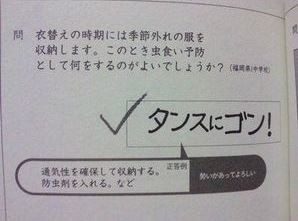 問 衣替えの時期には季節外れの服を
収納します。このとき虫食い予防
として何をするのがよいでしょうか？（福岡県/中学校）
タンスにゴン！
正答例
通気性を確保して収納する。
防虫剤を入れる。など
勢いがあってよろしい